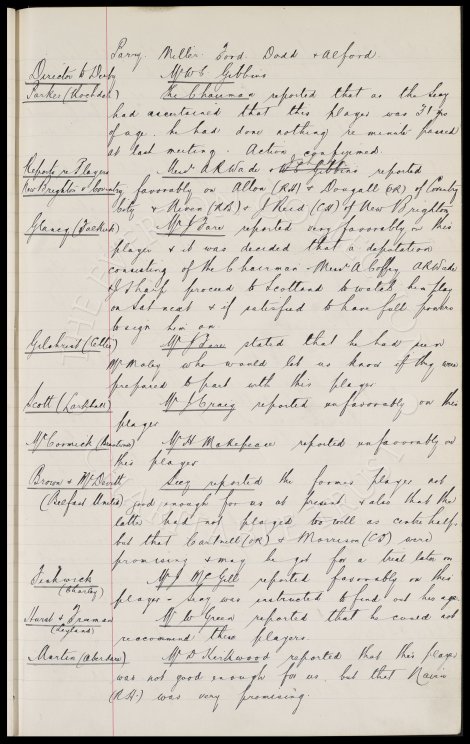 Parry. Miller. Ford. Dodd & Alford.
Director to Derby Mr W.C. Gibbins
Parker (Rochdale) The Chairman reported that as the Secy
had ascertained that this player was 31 yrs
of age. he had done nothing re minute passed
at last meeting. Action confirmed.
Reports re Players Messrs A.R. Wade & W.C. Gibbins reported
New Brighton & Coventry favorably on Allon (RB) & Dougall (OR) of Coventry
City & (RB) & J Reid (CH) of New Brighton
Glancy (Falkirk) Mr J Fare reported very favorably on this
player & it was decided that a deputation
consisting of the Chairman Messrs A Coffey A.R. Wade
& J Sharp proceed to Scotland to watch him play
on Sat next & if satisfied to have full powers
to sign him on.
Gilchrist (Celtic) Mr J Fare stated that he had seen
Mr Maley who would let us know if they were
prepared to part with this player
Scott (Larkhall) Mr J Craig reported unfavorably on this
player
McCormick Mr H Makepeace reported unfavorably on
this player
Brown & McDevitt Secy reported the former player not
(Belfast United) good enough for us at present & also that the
latter had not played so well as centre half.
but that Cartmell (OR) & Morrison were
promising & may be got for a trial later on
Fishwick Mr J McGill reported favorably on this
(Chorley) player - Secy was instructed to find out his age.
Hurst & Truman Mr W Green reported that he could not
(Leyland) reccommend these players
Martin (Aberdare) Mr D Kirkwood reported that this player
was not good enough for us. but that Nairn
(R.H.) was very promising.